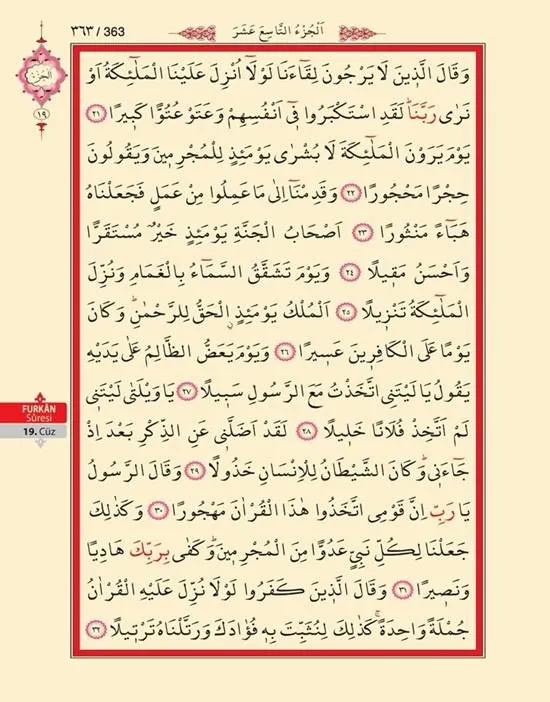 ٣٦٣ / 363
اَلْجُزْءُ التَّاسِعَ عَشَرَ
اَلْجُزْءُ
١٩
وَقَالَ الَّذ۪ينَ لَا يَرْجُونَ لِقَٓاءَنَا لَوْلَٓا اُنْزِلَ عَلَيْنَا الْمَلٰٓئِكَةُ اَوْ
نَرٰى رَبَّنَاۜ لَقَدِ اسْتَكْبَرُوا ف۪ٓي اَنْفُسِهِمْ وَعَتَوْ عُتُوًّا كَب۪يرًا ٢١
يَوْمَ يَرَوْنَ الْمَلٰٓئِكَةَ لَا بُشْرٰى يَوْمَئِذٍ لِلْمُجْرِم۪ينَ وَيَقُولُونَ
حِجْرًا مَحْجُورًا ٢٢ وَقَدِمْنَٓا اِلٰى مَا عَمِلُوا مِنْ عَمَلٍ فَجَعَلْنَاهُ
هَبَٓاءً مَنْثُورًا ٢٣ اَصْحَابُ الْجَنَّةِ يَوْمَئِذٍ خَيْرٌ مُسْتَقَرًّا
وَاَحْسَنُ مَق۪يلًا ٢٤ وَيَوْمَ تَشَقَّقُ السَّمَٓاءُ بِالْغَمَامِ وَنُزِّلَ
الْمَلٰٓئِكَةُ تَنْز۪يلًا ٢٥ اَلْمُلْكُ يَوْمَئِذٍۨ الْحَقُّ لِلرَّحْمٰنِۜ وَكَانَ
يَوْمًا عَلَى الْكَافِر۪ينَ عَس۪يرًا ٢٦ وَيَوْمَ يَعَضُّ الظَّالِمُ عَلٰى يَدَيْهِ
يَقُولُ يَا لَيْتَنِي اتَّخَذْتُ مَعَ الرَّسُولِ سَب۪يلًا ٢٧ يَا وَيْلَتٰى لَيْتَن۪ي
لَمْ اَتَّخِذْ فُلَانًا خَل۪يلًا ٢٨ لَقَدْ اَضَلَّن۪ي عَنِ الذِّكْرِ بَعْدَ اِذْ
جَٓاءَن۪يۜ وَكَانَ الشَّيْطَانُ لِلْاِنْسَانِ خَذُولًا ٢٩ وَقَالَ الرَّسُولُ
يَا رَبِّ اِنَّ قَوْمِي اتَّخَذُوا هٰذَا الْقُرْاٰنَ مَهْجُورًا ٣٠ وَكَذٰلِكَ
جَعَلْنَا لِكُلِّ نَبِيٍّ عَدُوًّا مِنَ الْمُجْرِم۪ينَۜ وَكَفٰى بِرَبِّكَ هَادِيًا
وَنَص۪يرًا ٣١ وَقَالَ الَّذ۪ينَ كَفَرُوا لَوْلَا نُزِّلَ عَلَيْهِ الْقُرْاٰنُ
جُمْلَةً وَاحِدَةًۚ كَذٰلِكَ لِنُثَبِّتَ بِه۪ فُؤٰادَكَ وَرَتَّلْنَاهُ تَرْت۪يلًا ٣٢
FURKÂN
Sûresi
19. Cüz